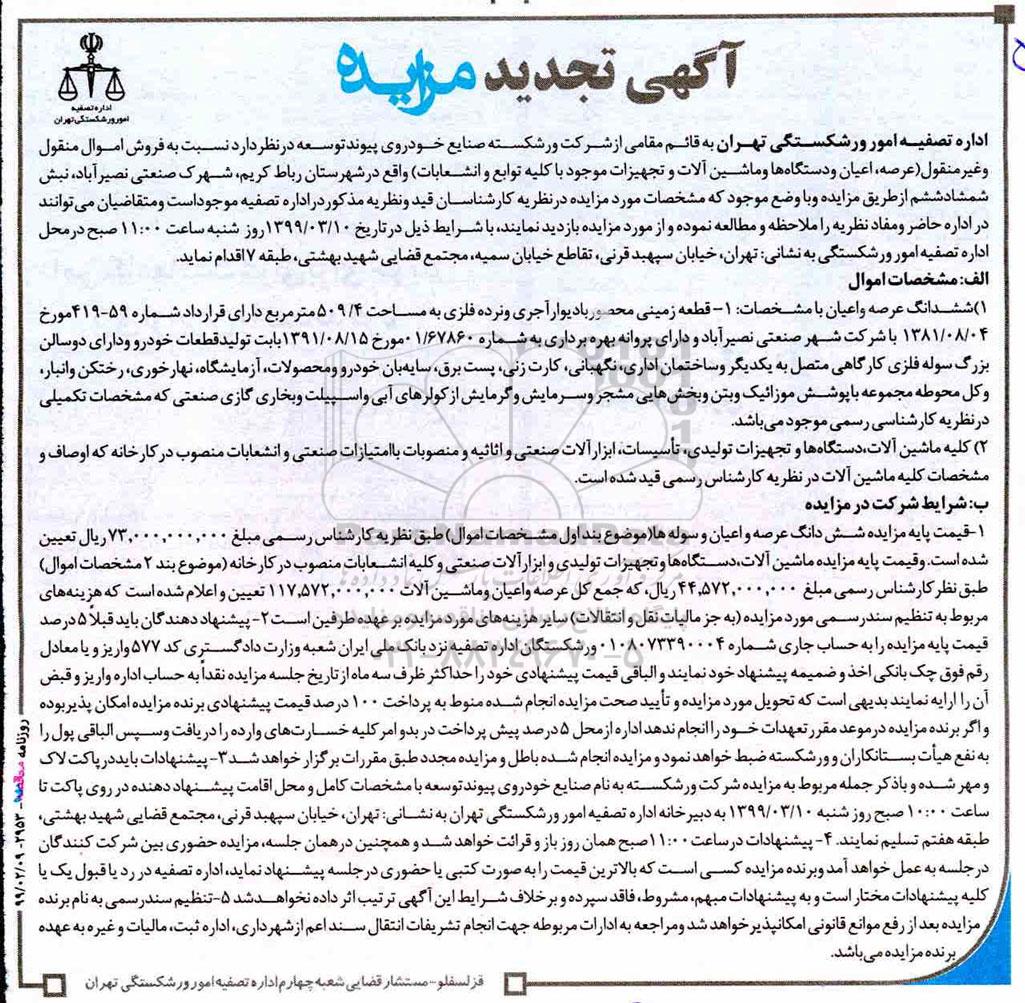 آگهی تجدید مزایده
اداره تصفیه
امور ورشکستگی تهران
اداره تصفیه امور ورشکستگی تهران به قائم مقامی از شرکت ورشکسته صنایع خودروی پیوند توسعه در نظر دارد نسبت به فروش اموال منقول
و غیر منقول (عرصه، اعیان و دستگاه‌ها و ماشین آلات و تجهیزات موجود با کلیه توابع و انشعابات) واقع در شهرستان رباط کریم، شهرک صنعتی نصیرآباد، نبش
شمشاد ششم از طریق مزایده و با وضع موجود که مشخصات مورد مزایده در نظریه کارشناسان قید و نظریه مذکور در اداره تصفیه موجود است و متقاضیان می‌توانند
در اداره حاضر و مفاد نظریه را ملاحظه و مطالعه نموده و از مورد مزایده بازدید نمایند، با شرایط ذیل در تاریخ ۱۳۹۹/۰۳/۱۰ روز شنبه ساعت ۱۱:۰۰ صبح در محل
اداره تصفیه امور ورشکستگی به نشانی: تهران، خیابان سپهبد قرنی، تقاطع خیابان سمیه، مجتمع قضایی شهید بهشتی، طبقه ۷ اقدام نماید.
الف: مشخصات اموال
۱) ششدانگ عرصه و اعیان با مشخصات: ۱- قطعه زمینی محصور با دیوار آجری و نرده فلزی به مساحت ۵۰۹/۴ متر مربع دارای قرارداد شماره ۵۹-۴۱۹ مورخ
۱۳۸۱/۰۸/۰۴ با شرکت شهر صنعتی نصیرآباد و دارای پروانه بهره برداری به شماره ۰۱/۶۷۸۶۰ مورخ ۱۳۹۱/۰۸/۱۵ بابت تولید قطعات خودرو و دارای دو سالن
بزرگ سوله فلزی کارگاهی متصل به یکدیگر و ساختمان اداری، نگهبانی، کارت زنی، پست برق، سایه‌بان خودرو و محصولات، آزمایشگاه، نهارخوری، رختکن و انبار،
و کل محوطه مجموعه با پوشش موزائیک و بتن و بخش‌هایی مشجر و سرمایش و گرمایش از کولرهای آبی و اسپیلت و بخاری گازی صنعتی که مشخصات تکمیلی
در نظریه کارشناسی رسمی موجود می‌باشد.
۲) کلیه ماشین آلات، دستگاه‌ها و تجهیزات تولیدی، تأسیسات، ابزار آلات صنعتی و اثاثیه و منصوبات با امتیازات صنعتی و انشعابات منصوب در کارخانه که اوصاف و
مشخصات کلیه ماشین آلات در نظریه کارشناس رسمی قید شده است.
ب: شرایط شرکت در مزایده
۱- قیمت پایه مزایده شش دانگ عرصه و اعیان و سوله ها (موضوع بند اول مشخصات اموال) طبق نظریه کارشناس رسمی مبلغ ۷۳,۰۰۰,۰۰۰,۰۰۰ ریال تعیین
شده است. وقیمت پایه مزایده ماشین آلات، دستگاه‌ها و تجهیزات تولیدی و ابزار آلات صنعتی و کلیه انشعابات منصوب در کارخانه (موضوع بند ۲ مشخصات اموال)
طبق نظر کارشناس رسمی مبلغ ۴۴,۵۷۲,۰۰۰,۰۰۰ ریال، که جمع کل عرصه واعیان وماشین آلات ۱۱۷,۵۷۲,۰۰۰,۰۰۰ تعیین و اعلام شده است که هزینه‌های
مربوط به تنظیم سند رسمی مورد مزایده (به جز مالیات نقل و انتقالات) سایر هزینه‌های مورد مزایده بر عهده طرفین است ۲- پیشنهاد دهندگان باید قبلاً ۵ درصد
قیمت پایه مزایده را به حساب جاری شماره ۰۱۰۸۰۷۳۳۹۰۰۰۴ ورشکستگان اداره تصفیه نزد بانک ملی ایران شعبه وزارت دادگستری کد ۵۷۷ واریز و یا معادل
رقم فوق چک بانکی اخذ و ضمیمه پیشنهاد خود نمایند و الباقی قیمت پیشنهادی خود را حداکثر ظرف سه ماه از تاریخ جلسه مزایده نقداً به حساب اداره واریز و قبض
آن را ارایه نمایند بدیهی است که تحویل مورد مزایده و تأیید صحت مزایده انجام شده منوط به پرداخت ۱۰۰ درصد قیمت پیشنهادی برنده مزایده امکان پذیر بوده
و اگر برنده مزایده در موعد مقرر تعهدات خود را انجام ندهد اداره از محل ۵ درصد پیش پرداخت در بدو امر کلیه خسارت‌های وارده را دریافت و سپس الباقی پول را
به نفع هیأت بستانکاران و ورشکسته ضبط خواهد نمود و مزایده انجام شده باطل و مزایده مجدد طبق مقررات برگزار خواهد شد ۳- پیشنهادات باید در پاکت لاک
و مهر شده و باذکر جمله مربوط به مزایده شرکت ورشکسته به نام صنایع خودروی پیوند توسعه با مشخصات کامل و محل اقامت پیشنهاد دهنده در روی پاکت تا
ساعت ۱۰:۰۰ صبح روز شنبه ۱۳۹۹/۰۳/۱۰ به دبیرخانه اداره تصفیه امور ورشکستگی تهران به نشانی: تهران، خیابان سپهبد قرنی، مجتمع قضایی شهید بهشتی،
طبقه هفتم تسلیم نمایند. ۴- پیشنهادات در ساعت ۱۱:۰۰ صبح همان روز باز و قرائت خواهد شد و همچنین در همان جلسه، مزایده حضوری بین شرکت کنندگان
در جلسه به عمل خواهد آمد و برنده مزایده کسی است که بالاترین قیمت را به صورت کتبی یا حضوری در جلسه پیشنهاد نماید، اداره تصفیه در رد یا قبول یک یا
کلیه پیشنهادات مختار است و به پیشنهادات مبهم، مشروط، فاقد سپرده و برخلاف شرایط این آگهی ترتیب اثر داده نخواهد شد ۵- تنظیم سند رسمی به نام برنده
مزایده بعد از رفع موانع قانونی امکانپذیر خواهد شد و مراجعه به ادارات مربوطه جهت انجام تشریفات انتقال سند اعم از شهرداری، اداره ثبت، مالیات و غیره به عهده
برنده مزایده می‌باشد.
قزلسفلو- مستشار قضایی شعبه چهارم اداره تصفیه امور ورشکستگی تهران
روزنامه مناقصه - ۲۹۵۳ - ۹۹/۰۲/۰۹